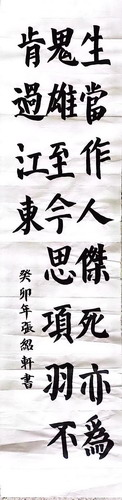 生當作人傑死亦為
鬼雄至今思項羽不
肯過江東
癸卯年張紹軒書